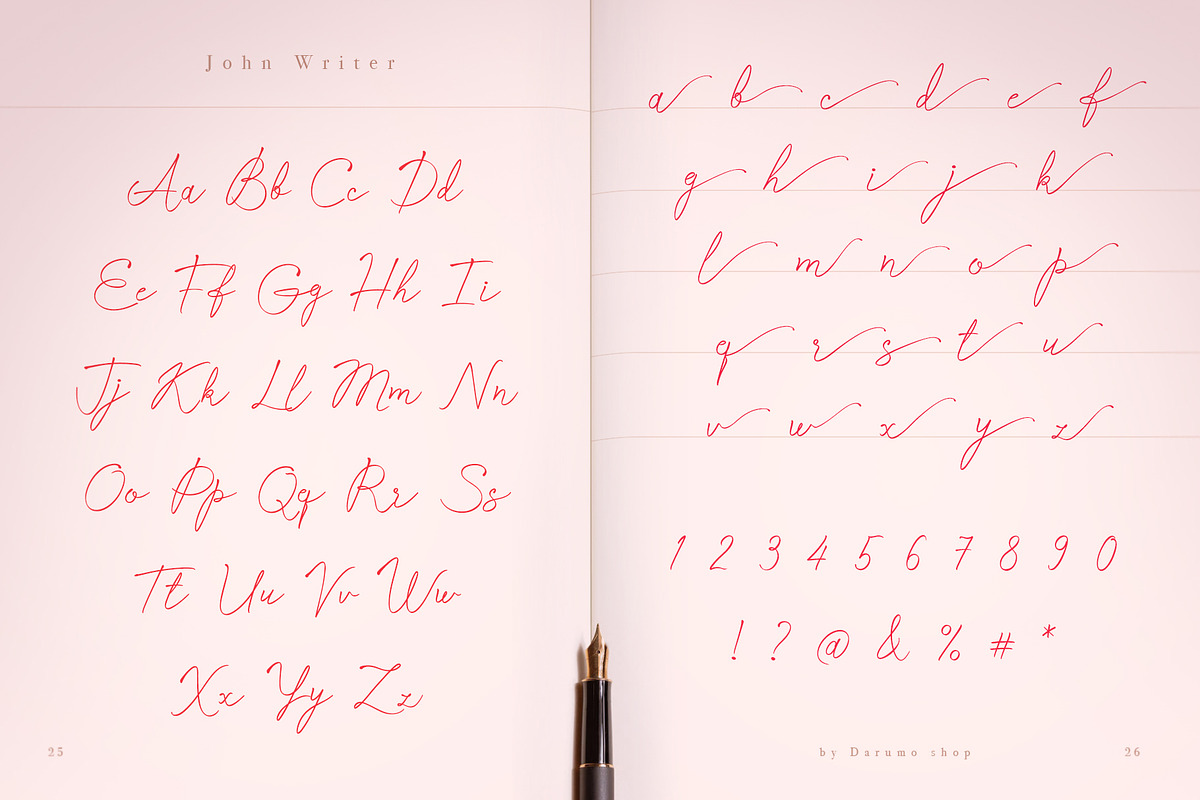 John Writer
Aa Bb Cc Dd
Ee Ff Gg Hh Ii
Jj Kk Ll Mm Nn
Oo Pp Qq Rr Ss
Tt Uu Vv Ww
Xx Yy Zz
25
a b c d e f
g h i j k
l m n o p
q r s t u
v w x y z
1 2 3 4 5 6 7 8 9 0
! ? @ & % # *
by Darumo shop
26